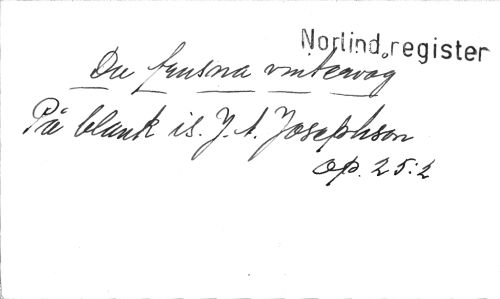 Norlind, register
Du frusna vintervåg
På blank is. J. A. Josephson
op. 25:2